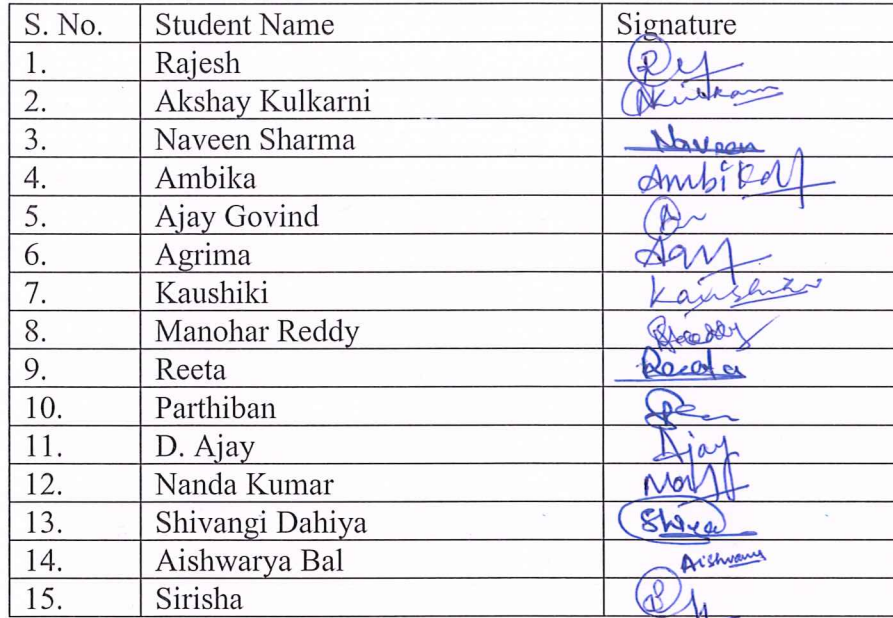 S. No. Student Name Signature
1. Rajesh
2. Akshay Kulkarni
3. Naveen Sharma Naveen
4. Ambika Ambika
5. Ajay Govind
6. Agrima
7. Kaushiki
8. Manohar Reddy Reddy
9. Reeta Reeta
10. Parthiban
11. D. Ajay Ajay
12. Nanda Kumar
13. Shivangi Dahiya
14. Aishwarya Bal
15. Sirisha